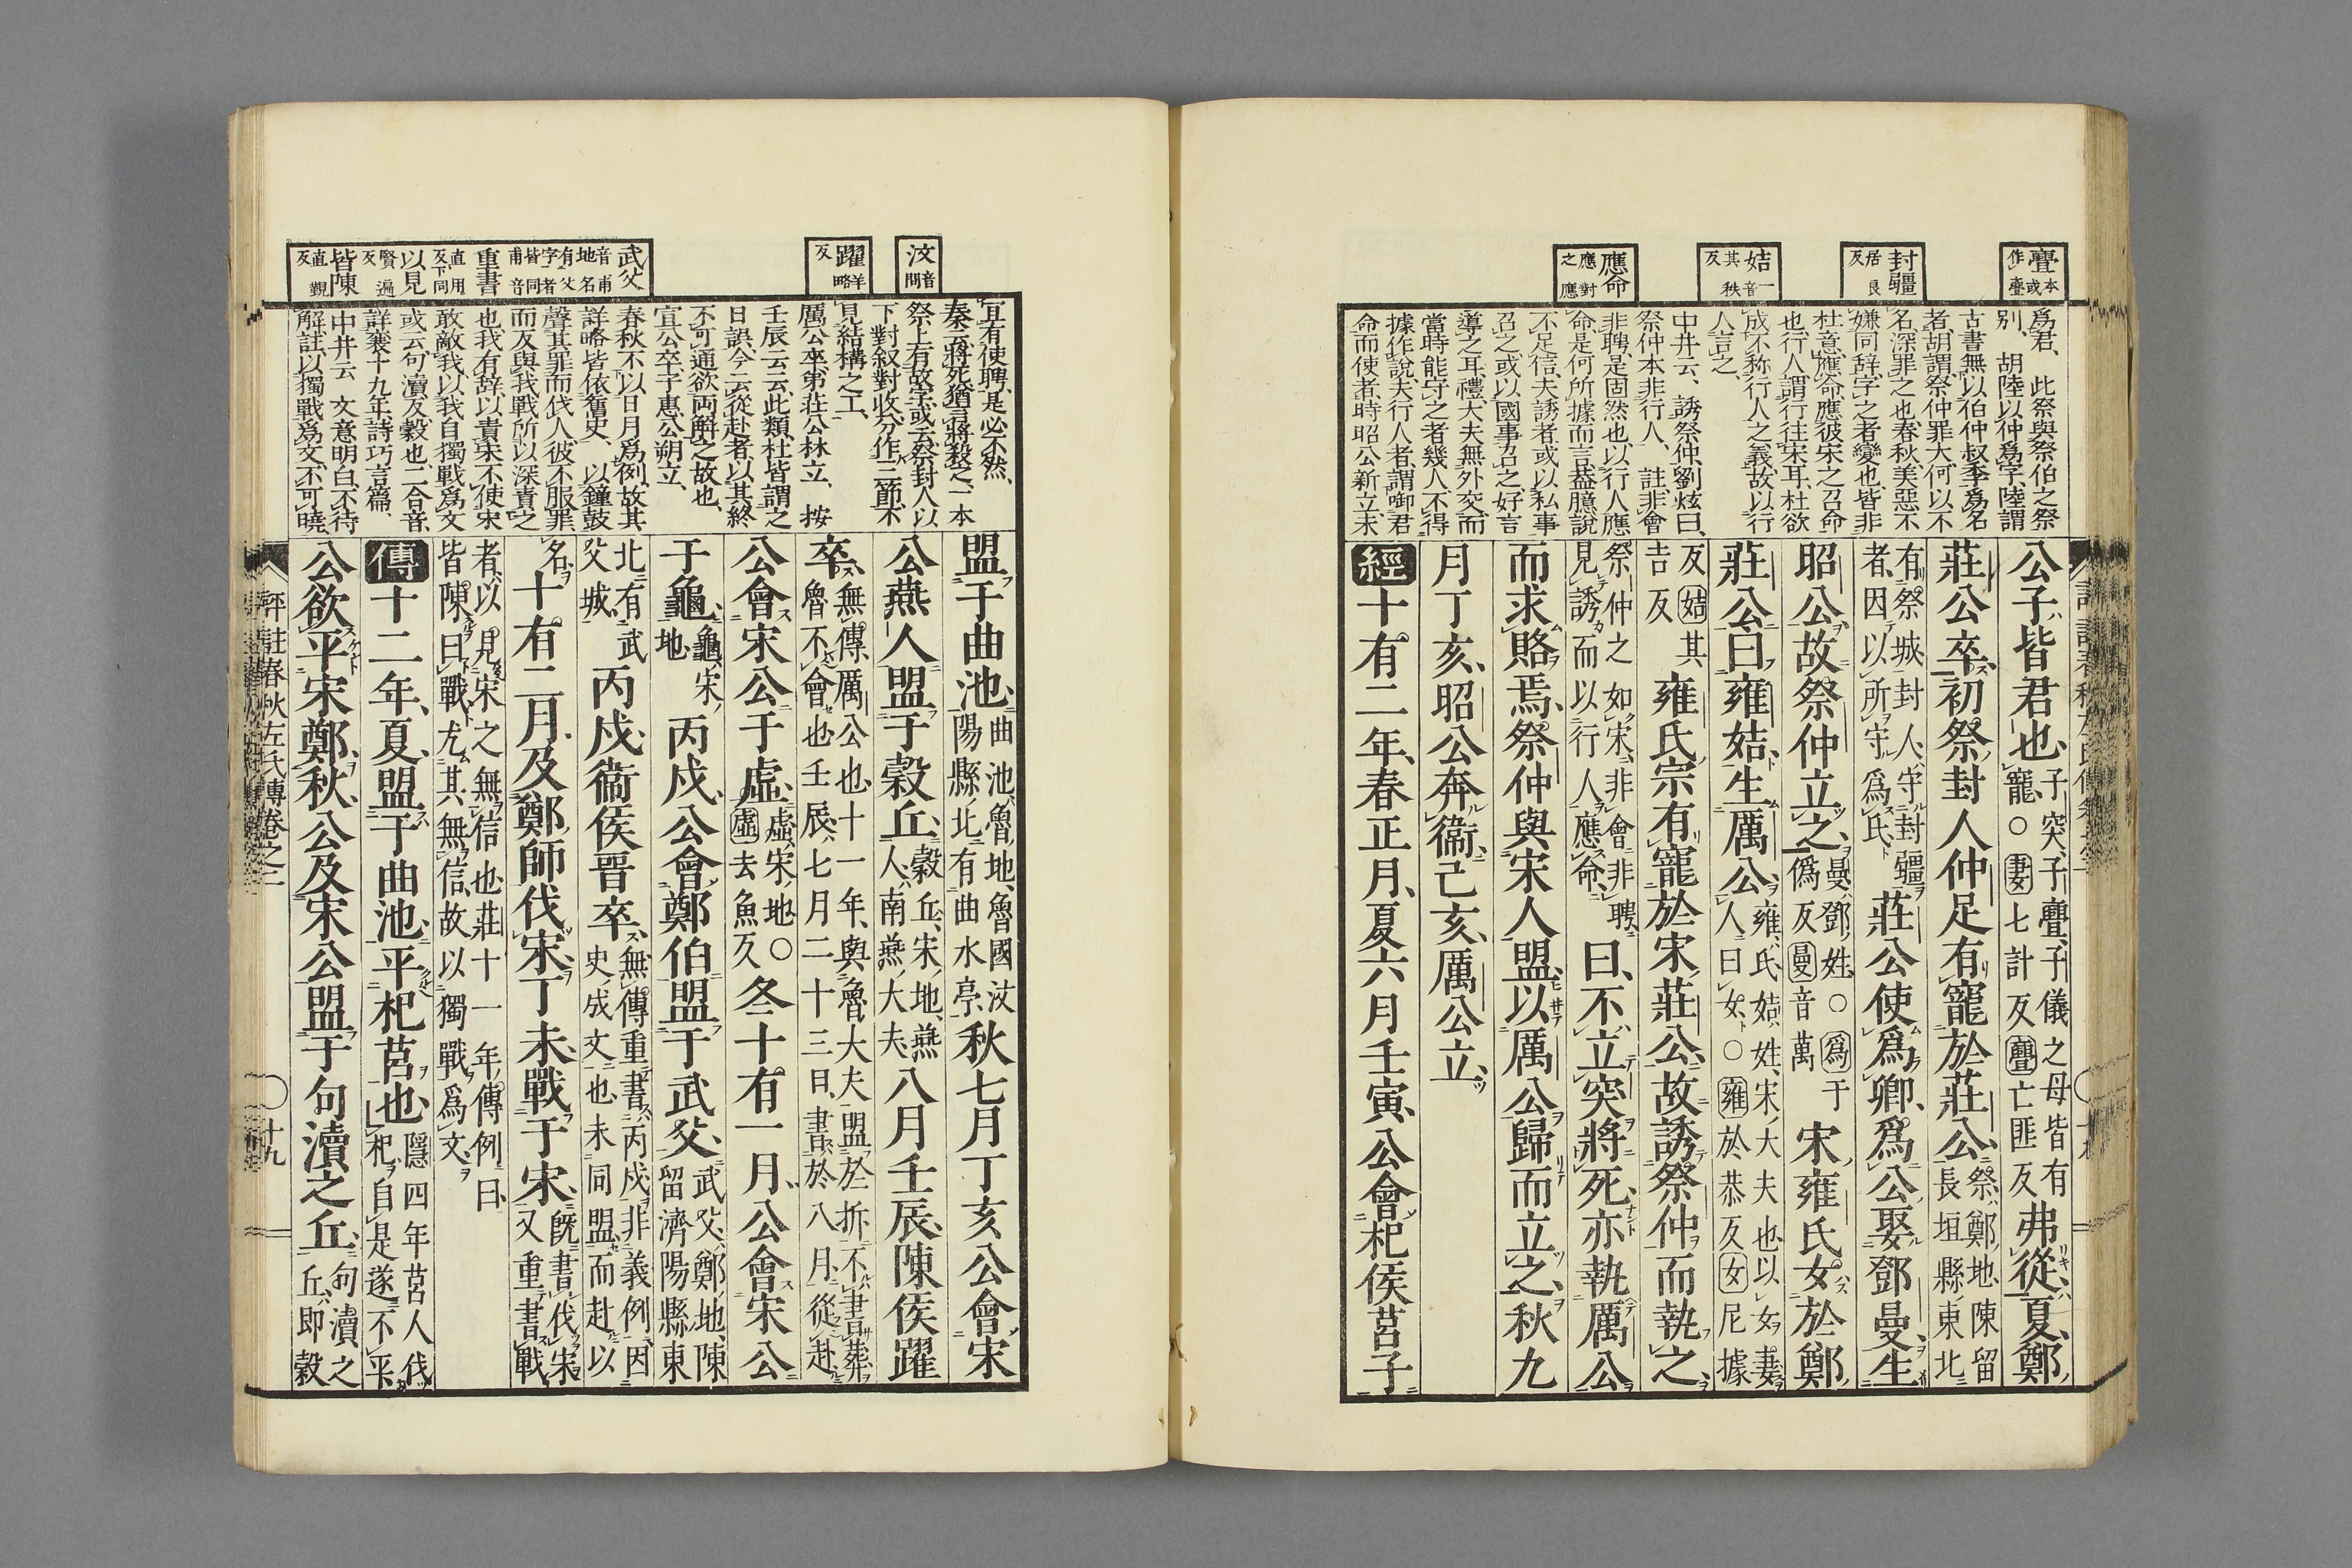 亹本或作亹
封疆居良反
姞一音其秩反
應命應對之應
爲君、 此祭與祭伯之祭
別、 胡陸以仲爲字、陸謂
古書無以伯仲叔季爲名
者、胡謂祭仲罪大、何以不
名、深罪之也、春秋美惡不
嫌同辭、字之者變也、皆非
杜意、應命、應彼宋之召命
也、行人、謂行往宋耳、杜欲
成不称行人之義、故以行
人言之、
中井云、 誘祭仲、劉炫曰、
祭仲本非行人、 註非會
非聘、是固然也、以行人應
命、是何所據而言、蓋臆說
不足信、夫誘者、或以私事
召之、或以國事召之、好言
導之耳、禮、大夫無外交、而
當時能守之者幾人、不得
據作說、夫行人者、謂啣君
命而使者、時昭公新立、未
公子皆君也、子突、子亹、子儀之母皆有寵、○妻七計反亹亡匪反弗從、夏、鄭
莊公卒、初祭封人仲足有寵於莊公、祭、鄭地、陳留長垣縣東北
有祭城、封人、守封疆者、因以所守爲氏、莊公使爲卿、爲公娶鄧曼、生
昭公、故祭仲立之、曼、鄧姓、○爲于僞反曼音萬宋雍氏女於鄭
莊公、曰雍姞、生厲公、雍氏、姞姓、宋大夫也、以女妻人曰女、○雍於恭反女尼據
反姞其吉反雍氏宗有寵於宋莊公、故誘祭仲而執之、
祭仲之如宋、非會非聘、見誘而以行人應命、曰、不立突將死、亦執厲公
而求賂焉、祭仲與宋人盟、以厲公歸而立之、秋九
月丁亥、昭公奔衞、己亥、厲公立、
經十有二年、春正月、夏六月壬寅、公會杞侯莒子
汶音問
躍羊略反
武父音甫地名有父字者皆同音甫
重書直用反下同
以見賢遍反
皆陳直覲反
宜有使聘、是必不然、
秦云、將死、猶言將殺之、一本
祭上有故字、或云、祭封人以
下對叙對收、分作三節、不
見結構之工、
厲公卒、弟莊公林立、 按
壬辰云云、此類、杜皆謂之
日誤、今云從赴者、以其終
不可通、欲兩解之故也、
宣公卒、子惠公朔立、
春秋不以日月爲例、故其
詳略皆依舊史、 以鐘鼓
聲其罪而伐人、彼不服罪、
而反與我戰、所以深責之
也、我有辭、以責宋、不使宋
敢敵我、以我自獨戰爲文
或云、句瀆反穀也、二合音、
詳襄十九年、詩巧言篇、
中井云、文意明白、不待
解註、以獨戰爲文、不可曉、
盟于曲池、曲池、魯地、魯國汶陽縣北有曲水亭、秋七月丁亥、公會宋
公燕人盟于穀丘、穀丘、宋地、燕人、南燕大夫、八月壬辰、陳侯躍
卒、無傳、厲公也、十一年、與魯大夫盟於折、不書葬、魯不會也、壬辰、七月二十三日、書於八月、從赴、
公會宋公于虛、虛、宋地、○虛去魚反冬十有一月、公會宋公
于龜、龜、宋地、丙戍、公會鄭伯盟于武父、武父、鄭地、陳留濟陽縣東
北有武父城、丙戍、衞侯晉卒、無傳、重書丙戍、非義例、因史成文也、未同盟而赴以
名、十有二月、及鄭師伐宋、丁未、戰于宋、旣書伐宋、又重書戰
者、以見宋之無信也、莊十一年、傳例曰、皆陳曰戰、尤其無信、故以獨戰爲文、
傳十二年、夏、盟于曲池、平杞莒也、隱四年莒人伐杞、自是遂不平、
公欲平宋鄭、秋、公及宋公盟于句瀆之丘、句瀆之丘、卽穀
評註春秋左氏傳卷之二 十九